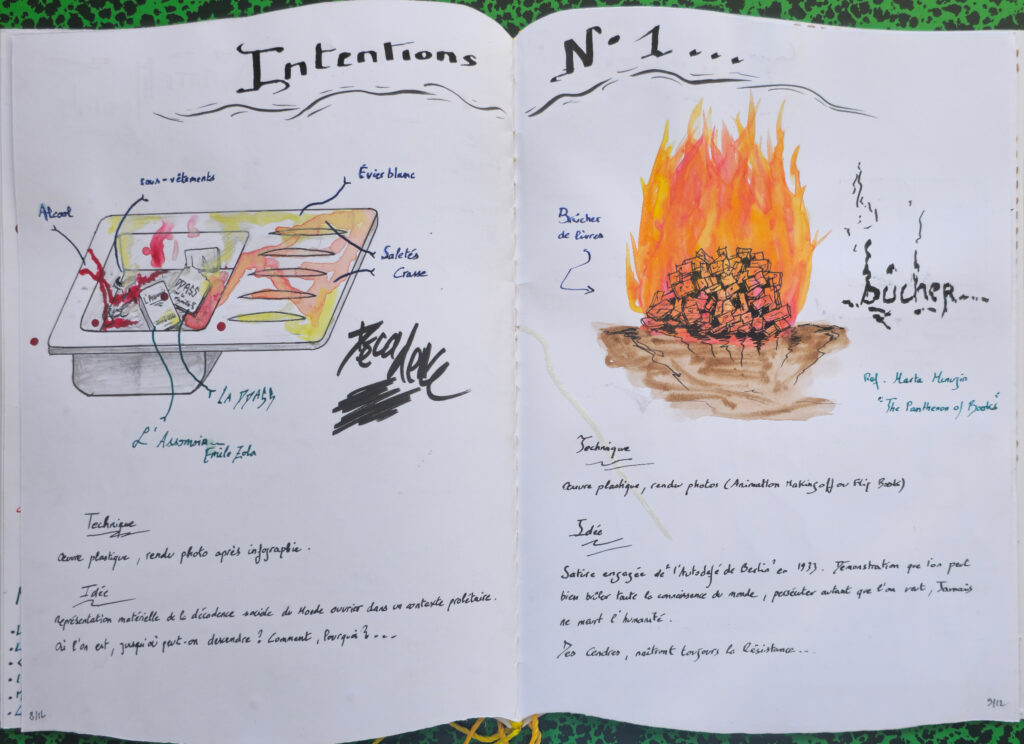 Intentions N°1...
Alcool
sous-vêtements
Évier blanc
Saletés
Crasse
DDASS
Décadence
LA DDASS
L'Assomoir
Emile Zola
Technique
Œuvre plastique, rendu photo après infographie.
Idée
Représentation matérielle de la décadence sociale du Monde ouvrier dans un contexte prolétaire.
Où l'on est, jusqu'où peut-on descendre ? Comment, Pourquoi ?...
8/12
Bûcher
de livres
Le
bûcher...
Ref. Marta Minujin
"The Pantheron of Books"
Technique
Œuvre plastique, rendu photos (Animation Making off ou Flip Book)
Idée
Satire engagée de "l'Autodafé de Berlin" en 1933. Démonstration que l'on peut
bien brûler toute la connaissance du monde, persécuter autant que l'on veut, Jamais
ne meurt l'humanité.
Des Cendres, naîtront toujours la Résistance...
9/12